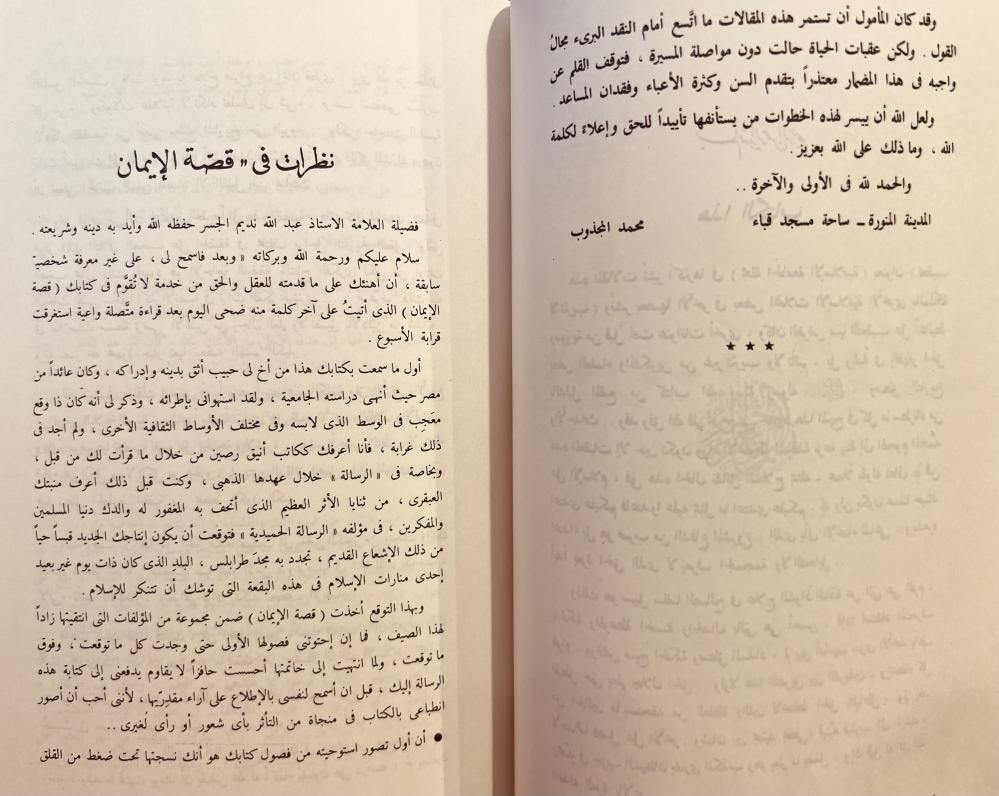 وقد كان المأمول أن تستمر هذه المقالات ما اتَّسع أمام النقد البرىء مجالُ
القول . ولكن عقبات الحياة حالت دون مواصلة المسيرة ، فتوقف القلم عن
واجبه فى هذا المضمار معتذراً بتقدم السن وكثرة الأعباء وفقدان المساعد .
ولعل الله أن ييسر لهذه الخطوات من يستأنفها تأييداً للحق وإعلاءً لكلمة
الله ، وما ذلك على الله بعزيز .
والحمد لله فى الأولى والآخرة . .
المدينة المنورة ــ ساحة مسجد قباء
محمد المجذوب
★ ★ ★
نظرات فى « قصّة الإيمان
فضيلة العلامة الاستاذ عبد الله نديم الجسر حفظه الله وأيد به دينه وشريعته .
سلام عليكم ورحمة الله وبركاته « وبعد فاسمح لى ، على غير معرفة شخصية
سابقة ، أن أهنئك على ما قدمته للعقل والحق من خدمة لا تُقوَّم فى كتابك ( قصة
الإيمان ) الذى أتيتُ على آخر كلمة منه ضحى اليوم بعد قراءة متَّصلة واعية استغرقت
قرابة الأسبوع .
أول ما سمعت بكتابك هذا من أخ لى حبيب أثق بدينه وإدراكه ، وكان عائداً من
مصر حيث أنهى دراسته الجامعية ، ولقد استهوانى بإطرائه ، وذكر لى أنه كان ذا وقع
معَجِب فى الوسط الذى لابسه وفى مختلف الأوساط الثقافية الأخرى ، ولم أجد فى
ذلك غرابة ، فأنا أعرفك ككاتب أنيق رصين من خلال ما قرأت لك من قبل ،
وبخاصة فى « الرسالة » خلال عهدها الذهبي ، وكنت قبل ذلك أعرف منبتك
العبقرى ، من ثنايا الأثر العظيم الذى أتحف به المغفور له والدك دنيا المسلمين
والمفكرين ، فى مؤلفه « الرسالة الحميدية » فتوقعت أن يكون إنتاجك الجديد قبساً حياً
من ذلك الإشعاع القديم ، تجدد به مجدَ طرابلس ، البلدِ الذى كان ذات يوم غير بعيد
إحدى منارات الإسلام فى هذه البقعة التى توشك أن تتنكر للإسلام .
وبهذا التوقع أخذت ( قصة الإيمان ) ضمن مجموعة من المؤلفات التى انتقيتها زاداً
لهذا الصيف ، فما إن إحتوتنى فصولها الأولى حتى وجدت كل ما توقعت ، وفوق
ما توقعت ، ولما انتهيت إلى خاتمتها أحسست حافزاً لا يقاوم يدفعنى إلى كتابة هذه
الرسالة إليك ، قبل ان أسمح لنفسى بالإطلاع على آراء مقدِّريها ، لأننى أحب أن أصور
انطباعى بالكتاب فى منجاة من التأثر بأى شعور أو رأى لغيرى . .
● أن أول تصور استوحيته من فصول كتابك هو أنك نسجتها تحت ضغط من القلق